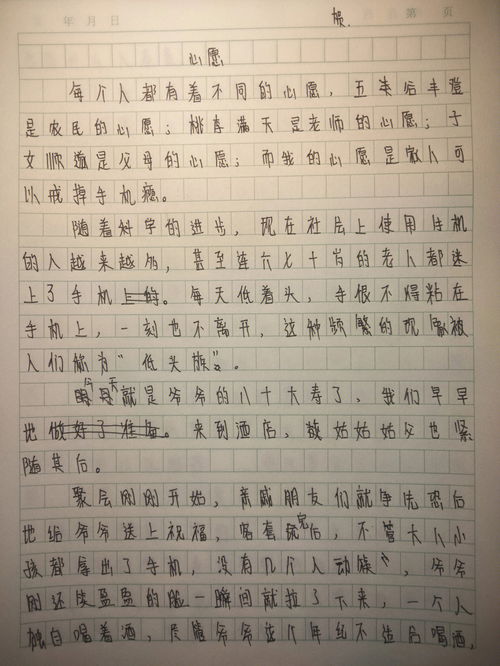 年 月 日 贺. 第 页
心愿
每个人都有着不同的心愿，五谷丰登
是农民的心愿；桃李满天是老师的心愿；子
女顺遂是父母的心愿；而我的心愿是家人可
以戒掉手机瘾。
随着科学的进步，现在社会上使用手机
的人越来越多，甚至连六七十岁的老人都迷
上了手机上的。每天低着头，手恨不得粘在
手机上，一刻也不离开，这种频繁的现象被
人们称为“低头族”。
今天就是爷爷的八十大寿了，我们早早
地做好了准备。来到酒店，姑姑姑父也紧
随其后。
聚会刚刚开始，亲戚朋友们就争先恐后
地给爷爷送上祝福，客套完后，不管大人小
孩都拿出了手机，没有几个人动筷，爷爷
刚还笑盈盈的脸一瞬间就拉了下来，一个人
独自喝着酒，尽管爷爷这个年纪不适合喝酒，